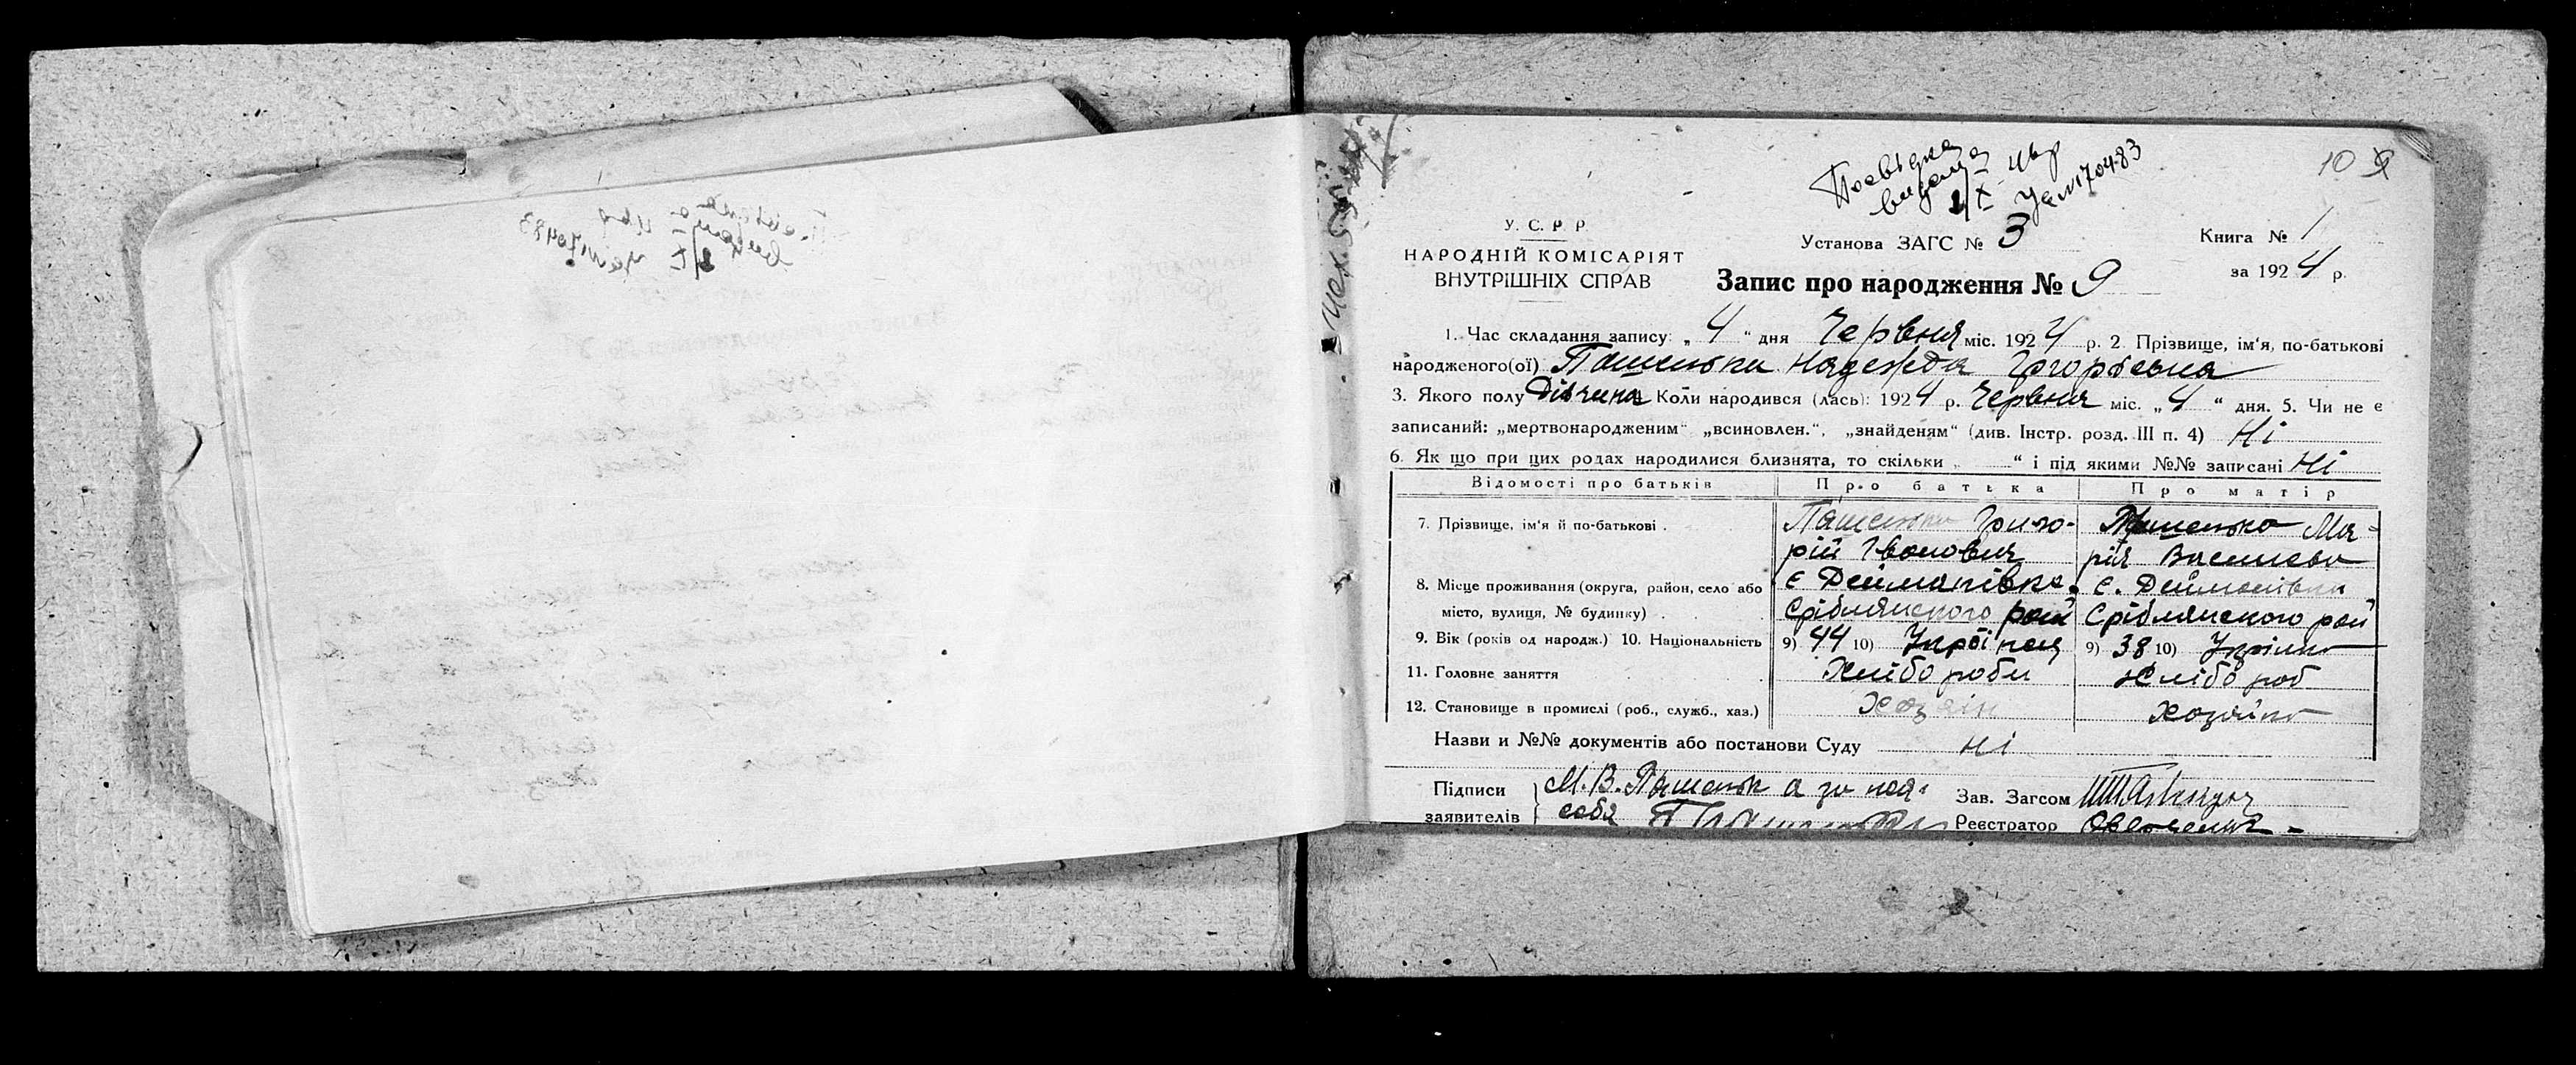 Посвідка
видана
Уам 170483
10
У. С. Р. Р.
НАРОДНІЙ КОМІСАРІЯТ
ВНУТРІШНІХ СПРАВ
Установа ЗАГС № 3
Книга № 1
Запис про народження № 9
за 1924 р.
1. Час складання запису: „4“ дня Червня міс. 1924 р. 2. Прізвище, ім‘я, по-батькові
народженого(ої) Пашенька Надежда Григорівна
3. Якого полу Дівчина Коли народився (лась): 1924 р. Червня міс. „4“ дня. 5. Чи не є
записаний: „мертвонародженим“ „всиновлен.“, „знайденям“ (див. Інстр. розд. III п. 4) Ні
6. Як що при цих родах народилися близнята, то скільки „ — “ і під якими №№ записані Ні
Відомості про батьків Про батька Про матір
7. Прізвище, ім‘я й по-батькові . Пашенько Григо- Пашенько Ма-
рій Іванович рія Василева
8. Місце проживання (округа, район, село або с Дейманівка. с. Дейманівки
місто, вулиця, № будинку) . Срібнянського рай Срібнянського рай
9. Вік (років од народж.) 10. Національність 9) 44 10) Украінец 9) 38 10)
11. Головне заняття Хлібороби Хлібороб
12. Становище в промислі (роб., служб., хаз.) Хозяін Хозяйка
Назви и №№ документів або постанови Суду Ні
Підписи М. В. Пашеньк а за нея. Зав. Загсом
заявителів себя Реєстратор